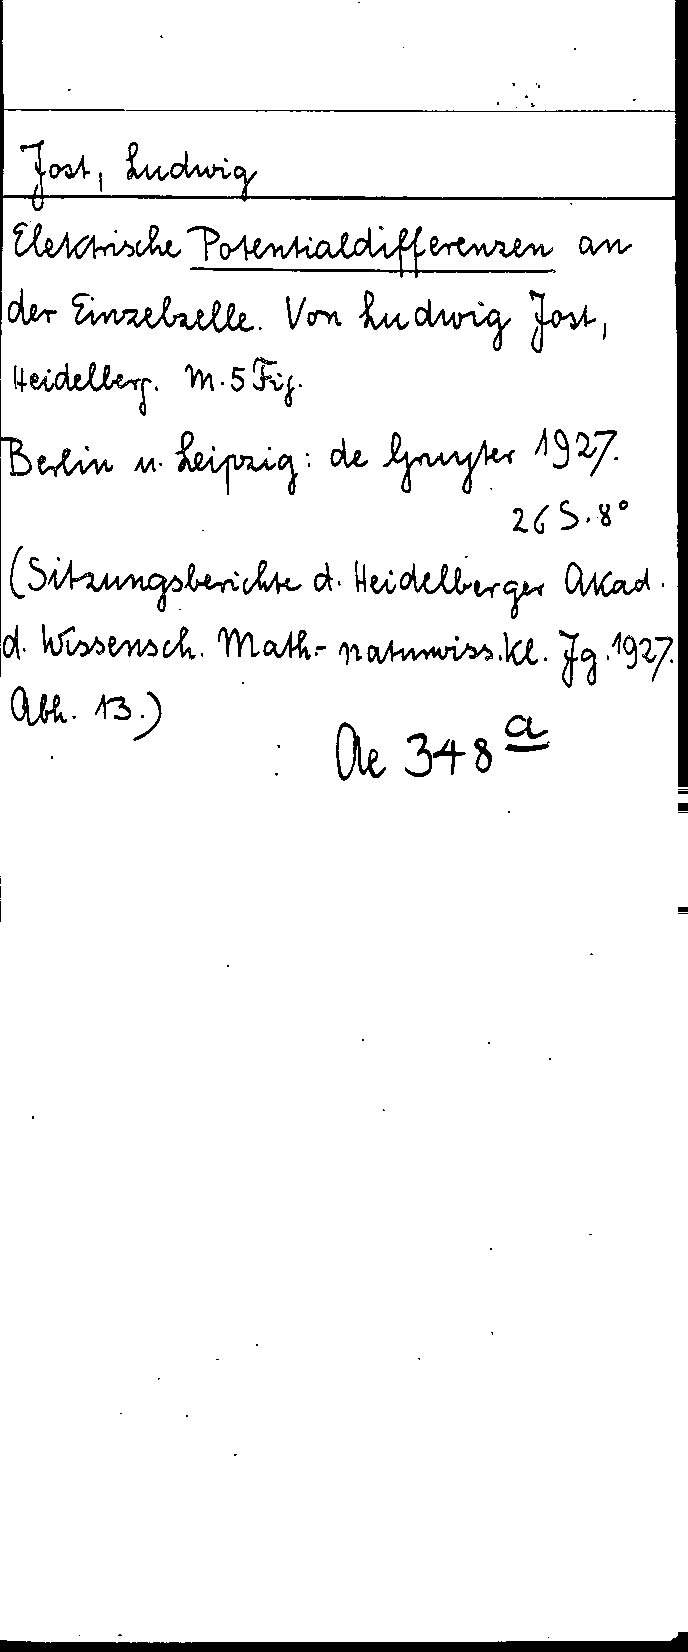 Jost, Ludwig
Elektrische Potentialdifferenzen an
der Einzelzelle. Von Ludwig Jost,
Heidelberg. M. 5 Fig.
Berlin u. Leipzig: de Gruyter 1927.
26 S. 8°
(Sitzungsberichte d. Heidelberger Akad.
d. Wissensch. Math.- naturwiss. Kl. Jg. 1927.
Abh. 13.)
Ae 348 a